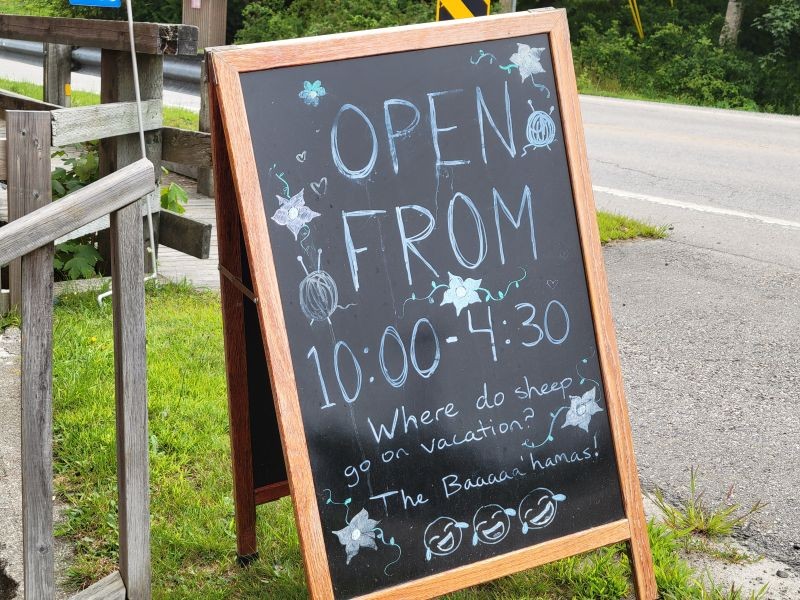 OPEN
FROM
10:00-4:30
Where do sheep
go on vacation?
The Baaaaa'hamas!